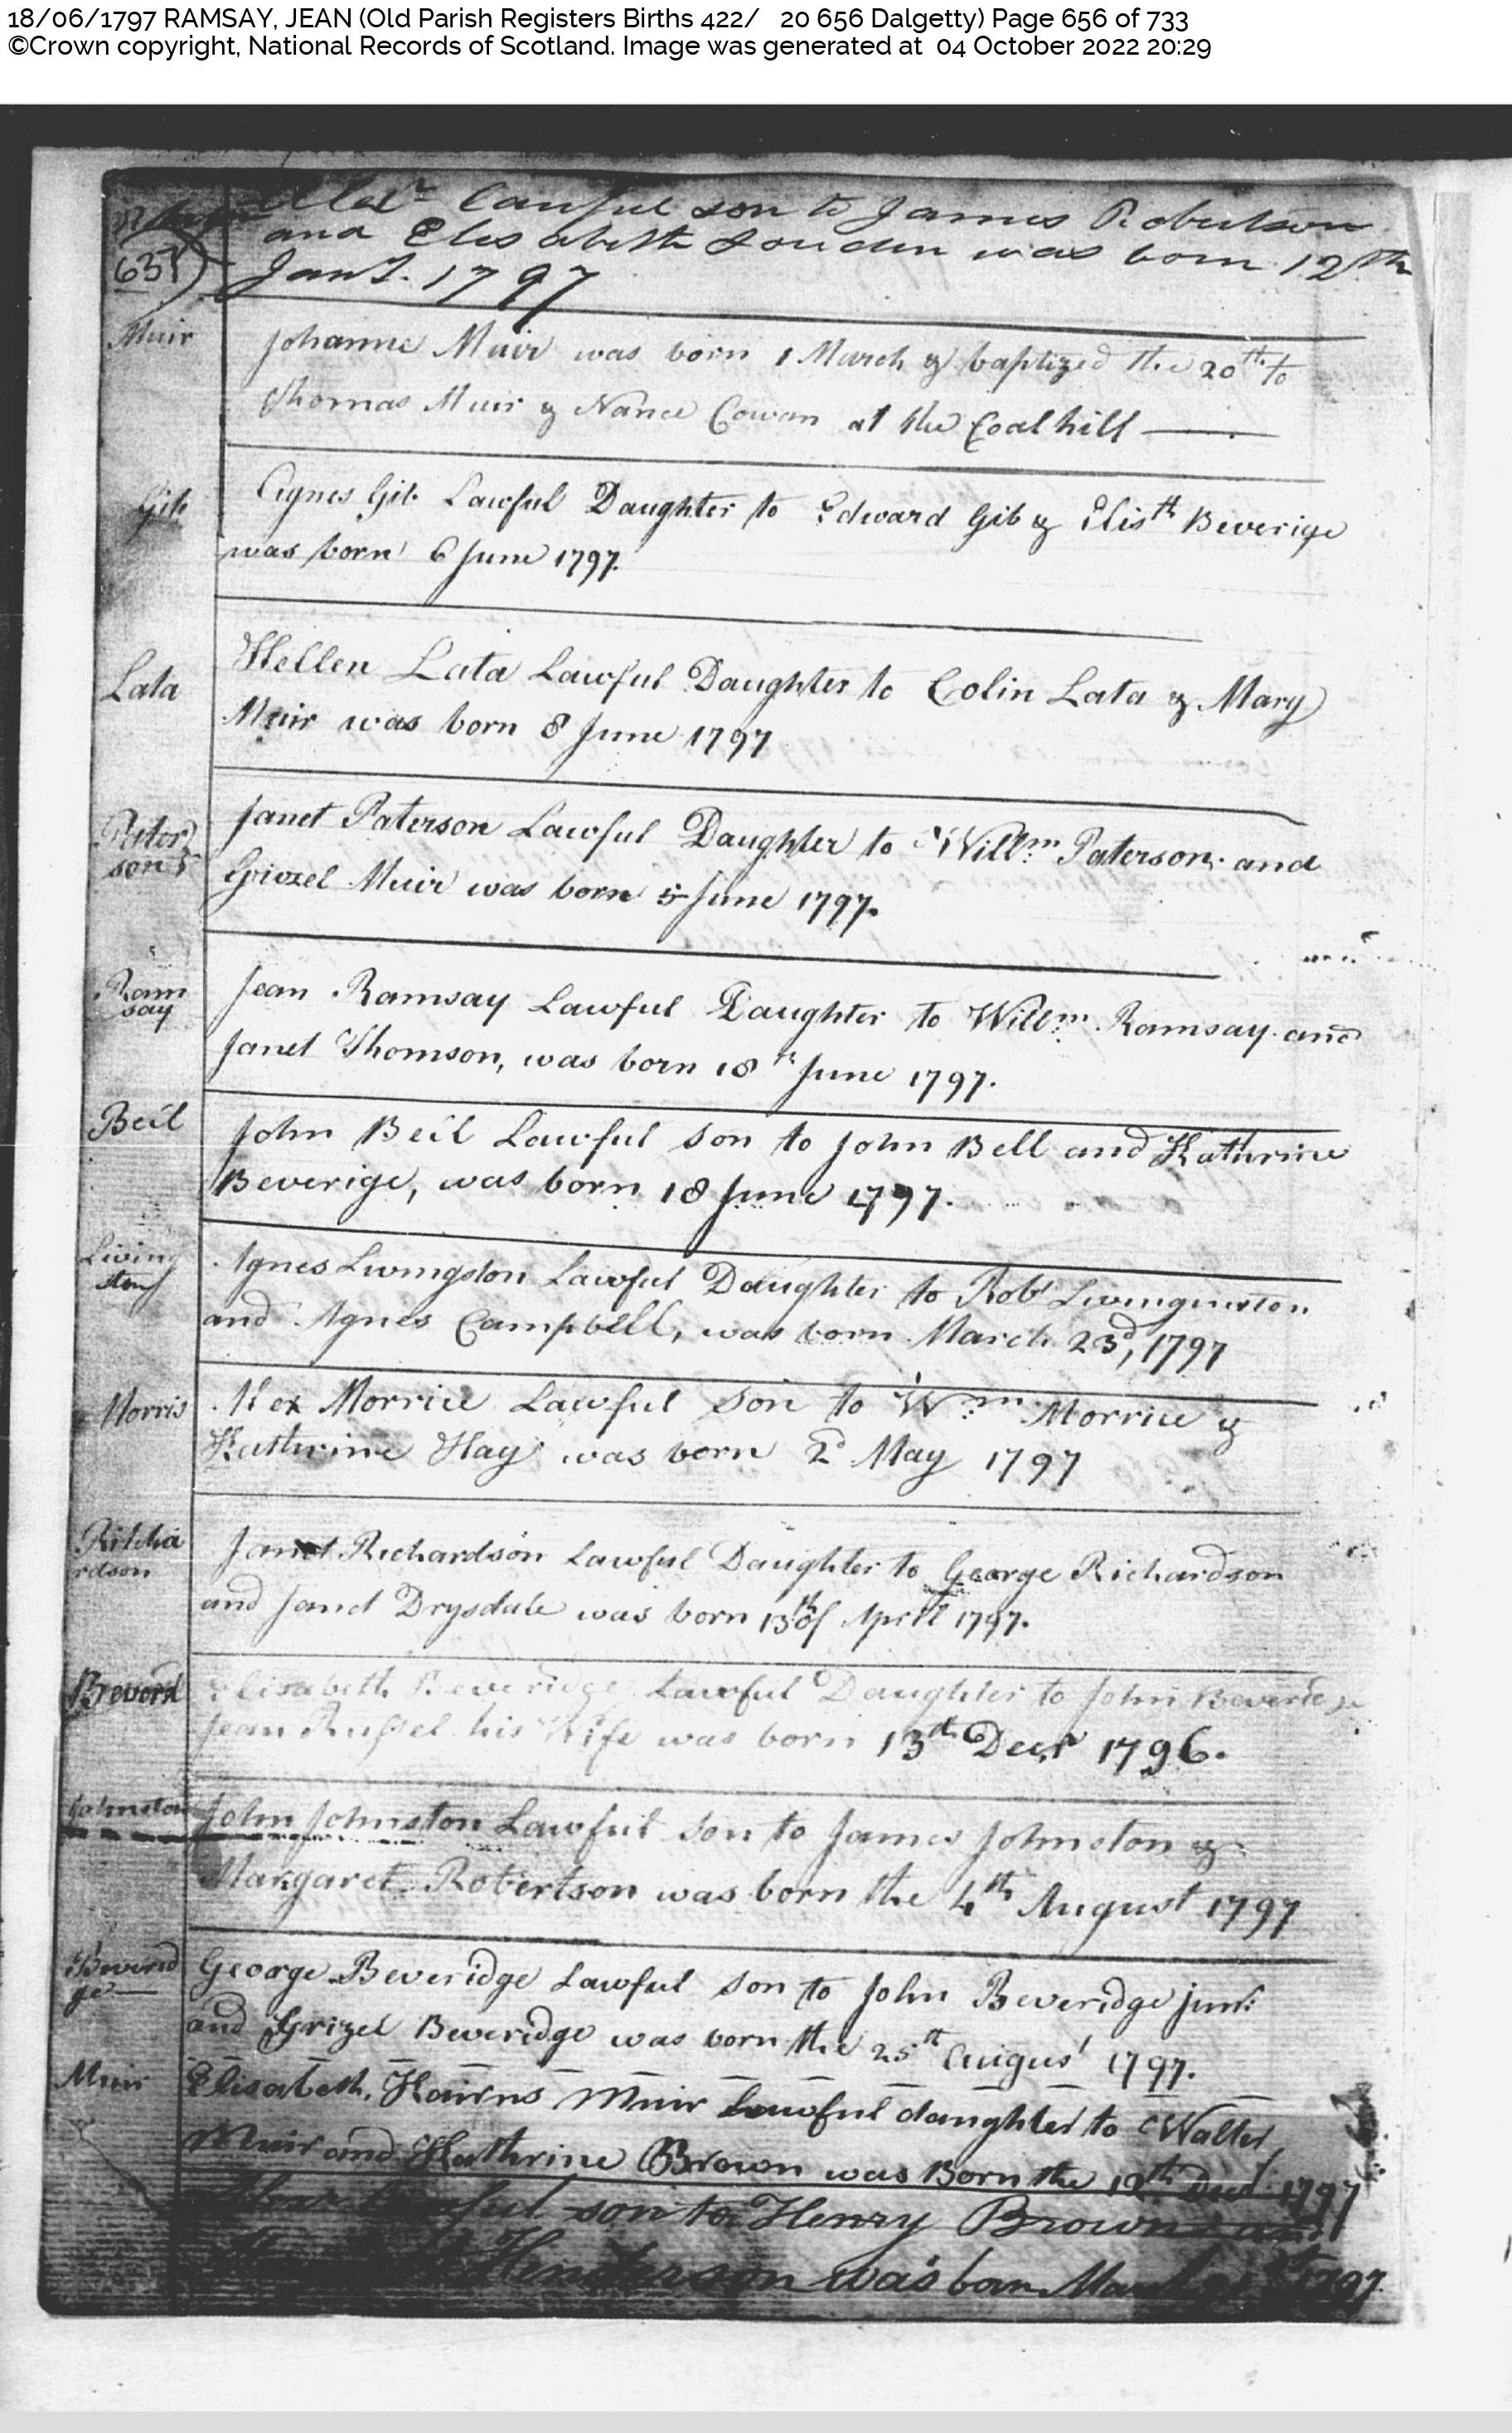 18/06/1797 RAMSAY, JEAN (Old Parish Registers Births 422/ 20 656 Dalgetty) Page 656 of 733
©Crown copyright, National Records of Scotland. Image was generated at 04 October 2022 20:29
Alexr Lawful son to James Robertson
and Elisabeth Louden was born 12th
Jany. 1797
Muir
Johanne Muir was born 1 March & baptized the 20th to
Thomas Muir & Nance Cowan at the Coalhill
Gib
Agnes Gib Lawful Daughter to Edward Gib & Elisth Beverige
was born 6 June 1797.
Lata
Hellen Lata Lawful Daughter to Colin Lata & Mary
Muir was born 8 June 1797
Pater
son
Janet Paterson Lawful Daughter to Willm Paterson and
Grizel Muir was born 5 June 1797.
Ram
say
Jean Ramsay Lawful Daughter to Willm. Ramsay and
Janet Thomson, was born 18th June 1797.
Beil
John Beil Lawful son to John Bell and Kathrine
Beverige, was born 18 June 1797.
Living
ston
Agnes Livingston Lawful Daughter to Robt Livingnston
and Agnes Campbell, was born March 23d, 1797
Morris
Alex Morrice Lawful son to Wm Morrice &
Kathrine Hay was born 2d May 1797
Ritcha
rdson
Janet Richardson Lawful Daughter to George Richardson
and Janet Drysdale was born 13th of Aprill 1797.
Beverd
Elisabeth Beveridge Lawful Daughter to John Beverige
Jean Russel his Wife was born 13th Decr 1796.
Johnston
John Johnston Lawful son to James Johnston &
Margaret Robertson was born the 4th August 1797
Beverid
ge
George Beveridge Lawful son to John Beveridge junr
and Grizel Beveridge was born the 25th August 1797.
Muir
Elisabeth Kairns Muir Lawful daughter to Walter
Muir and Kathrine Brown was Born the 12th Decr 1797
Lawful son to Henry Brown and
Henderson was born March 1797